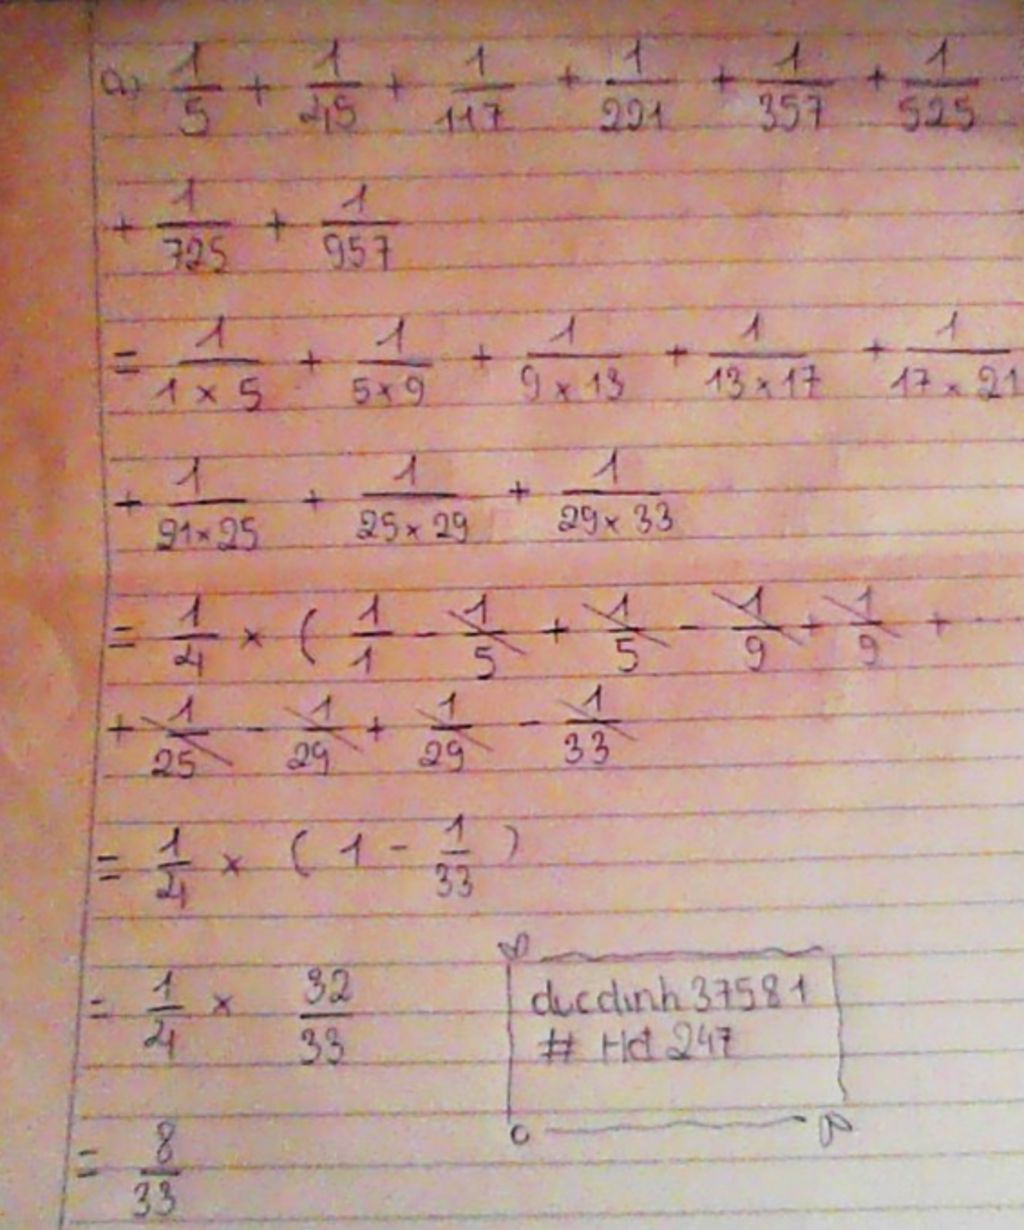 a) 1/5 + 1/45 + 1/117 + 1/221 + 1/357 + 1/525
+ 1/725 + 1/957
= 1/(1 × 5) + 1/(5 × 9) + 1/(9 × 13) + 1/(13 × 17) + 1/(17 × 21)
+ 1/(21 × 25) + 1/(25 × 29) + 1/(29 × 33)
= 1/4 × ( 1/1 - 1/5 + 1/5 - 1/9 + 1/9 + ...
+ 1/25 - 1/29 + 1/29 - 1/33
= 1/4 × ( 1 - 1/33 )
= 1/4 × 32/33
ducdinh37581
# Hd247
= 8/33